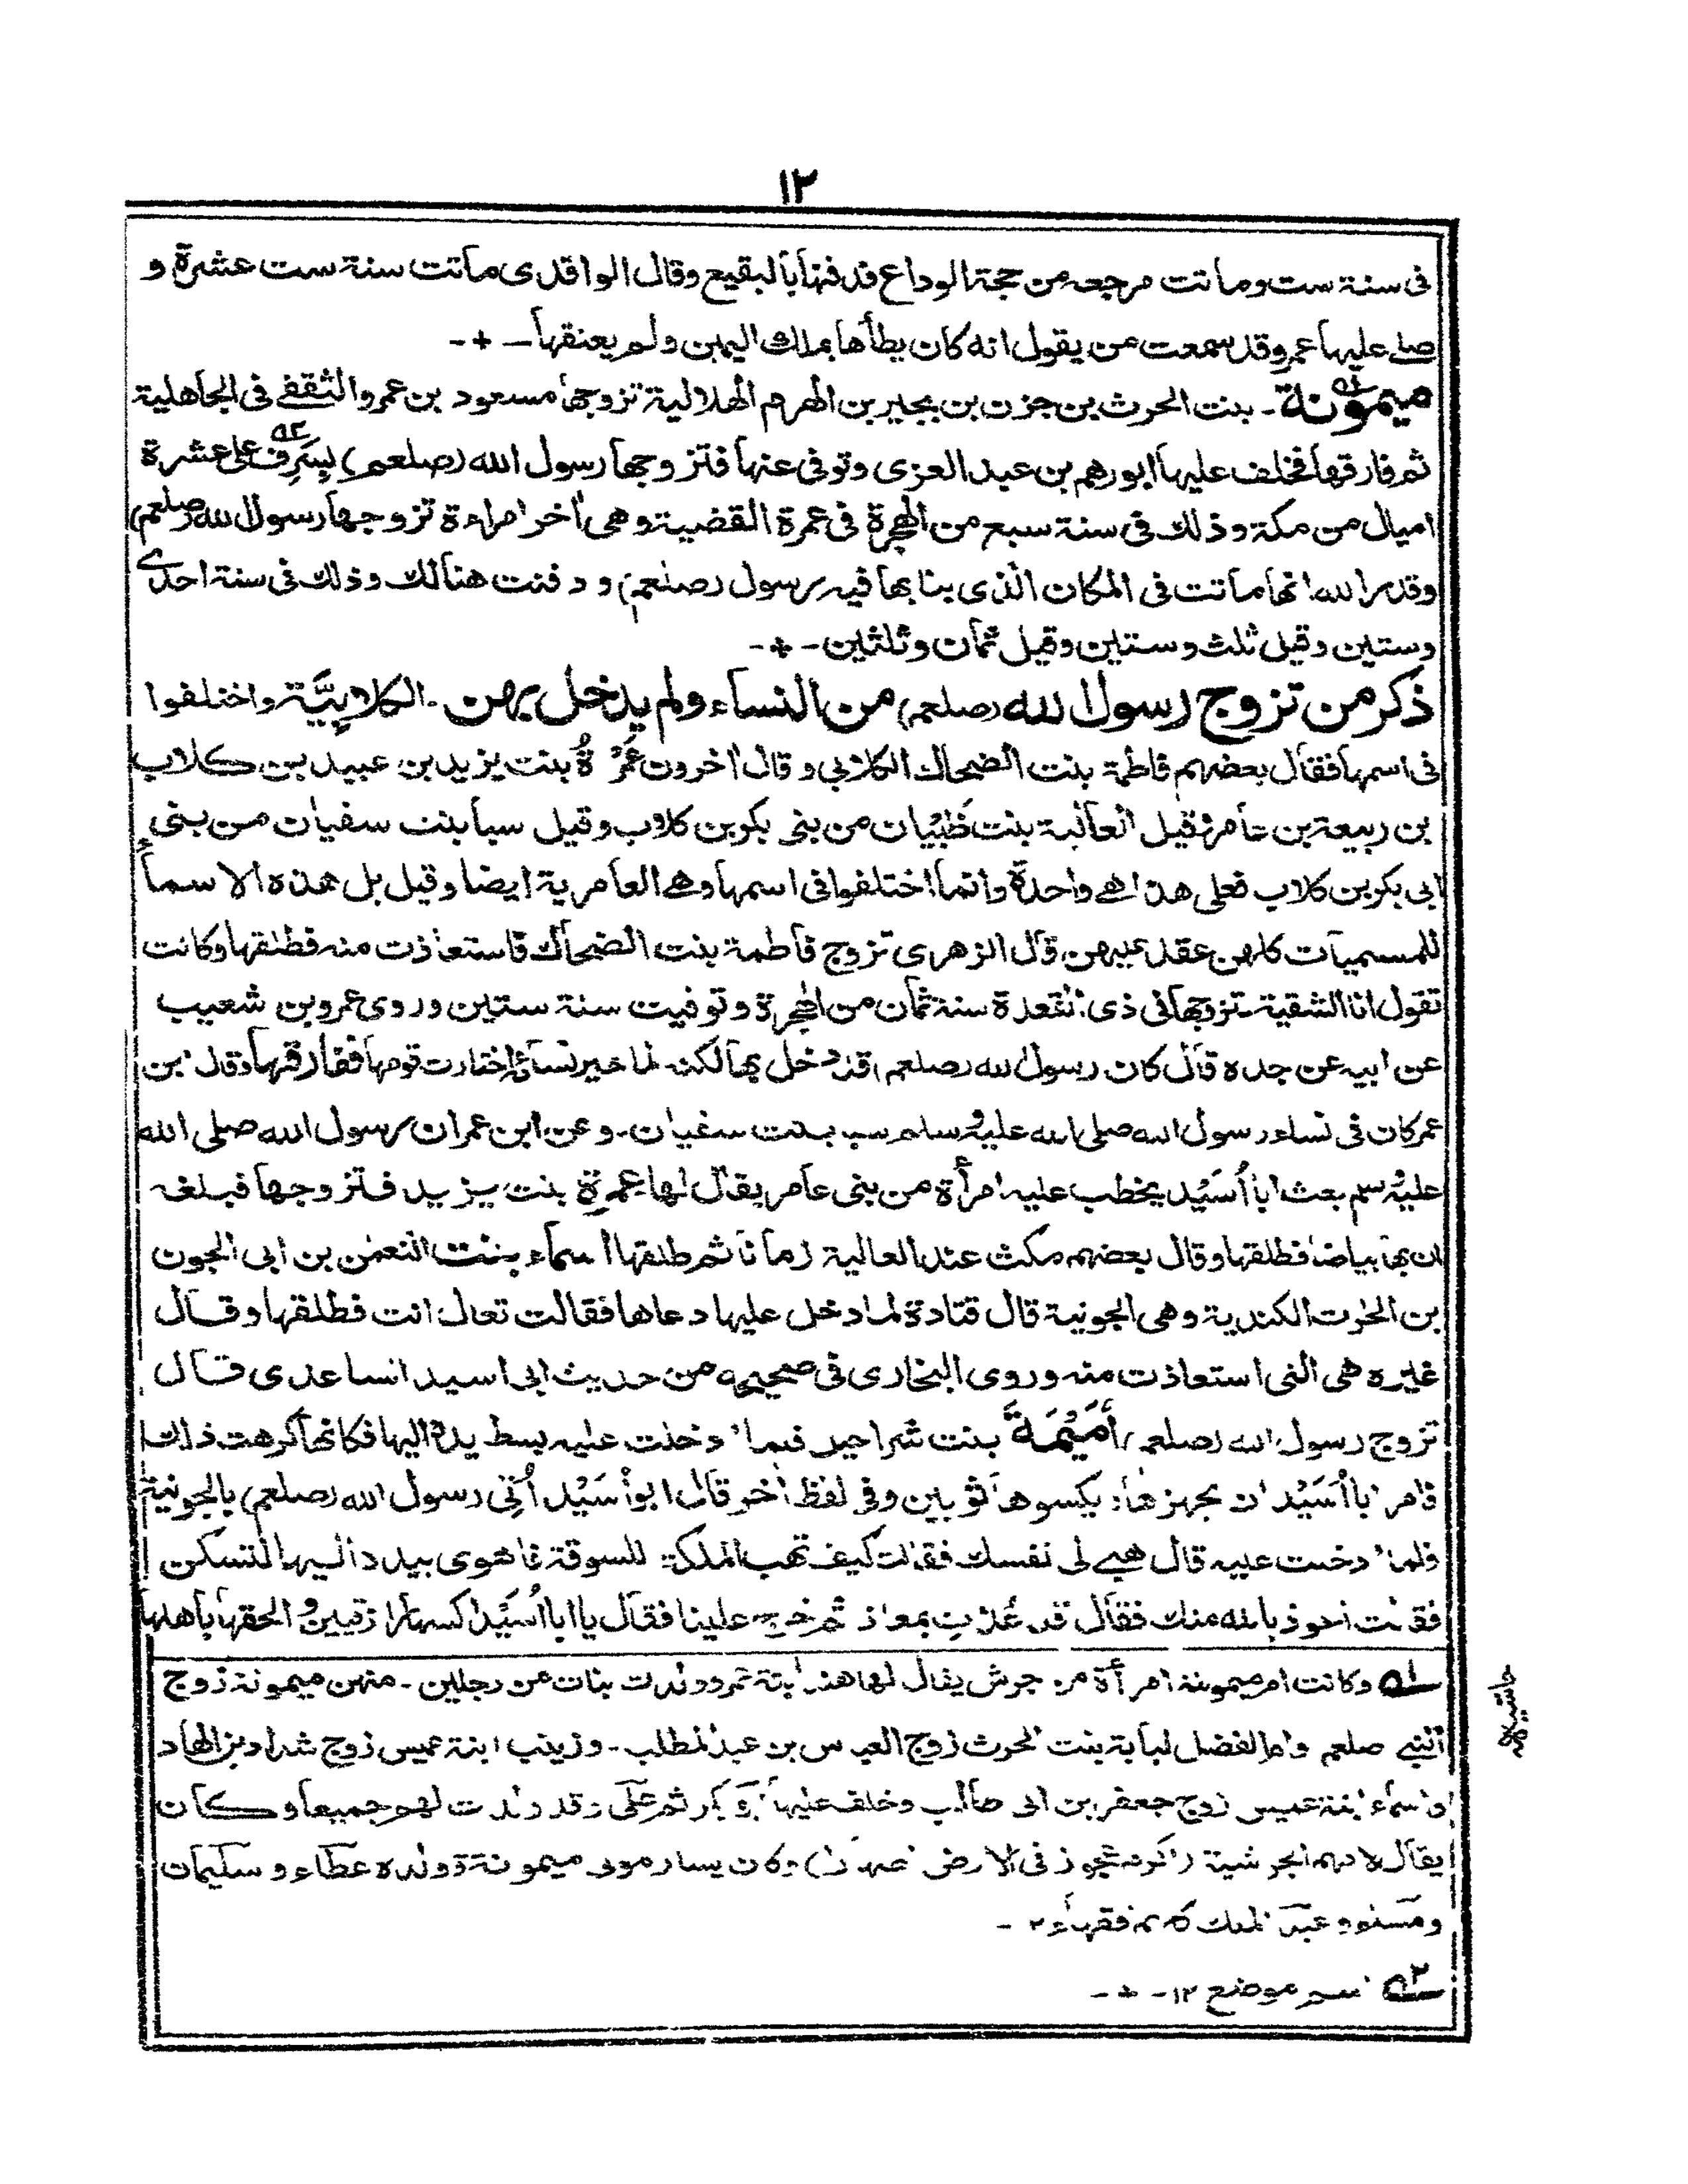 ١٢
فى سنة ست وماتت مرجعه من حجة الوداع فدفنها بالبقيع وقال الواقدى ماتت سنة ست عشرة و
صلے عليها عمر وقد سمعت من يقول انه كان يطأها بملك اليمين ولم يعتقها ــ + ـ
ميمونة ـ بنت الحرث بن جزن بن بجير بن الهرم الهلالية تزوجها مسعود بن عمرو الثقفے فى الجاهلية
ثم فارقها فخلف عليها ابو رهم بن عبد العزى وتوفى عنها فتزوجها رسول الله (صلعم) بِسَرِف على عشرة
اميال من مكة وذلك فى سنة سبع من الهجرة فى عمرة القضية وهى اٰخر امراءة تزوجها رسول الله (صلعم)
وقدر الله انها ماتت فى المكان الذى بنا بها فيه رسول (صلعم) و دفنت هنالك وذلك فى سنة احدے
وستين وقيل ثلث وستين وقيل ثمان وثلثين ـ + ـ
ذكر من تزوج رسول الله (صلعم) من النساء ولم يدخل بهن ـ الكلابِيَّة واختلفوا
فى اسمها فقال بعضهم فاطمة بنت الضحاك الكلابي و قال اٰخرون عَمْرَةُ بنت يزيد بن عبيد بن كلاب
بن ربيعة بن عامر وقيل العالية بنت ظَبْيان من بنى بكر بن كلاب وقيل سبا بنت سفيان من بنى
ابى بكر بن كلاب فعلى هذا هے واحدة وانما اختلفوا فى اسمها وهے العامرية ايضا وقيل بل هذه الاسماء
للمسميات كلهن عقد عليهن قال الزهرى تزوج فاطمة بنت الضحاك فاستعاذت منه فطلقها وكانت
تقول انا الشقية ـ تزوجها فى ذى القعدة سنة ثمان من الهجرة وتوفيت سنة ستين وروى عمرو بن شعيب
عن ابيه عن جده قال كان رسول الله (صلعم) قد دخل بها لكنه لما خير نسائه اختارت قومها ففارقها وقال ابن
عمر كان فى نساء رسول الله صلى الله عليه وسلم سبا بنت سفيان ـ وعن ابن عمر ان رسول الله صلى الله
عليه وسلم بعث ابا أُسَيْد يخطب عليه امرأة من بنى عامر يقال لها عمرة بنت يزيد فتزوجها فبلغه
ان بها بياضا فطلقها وقال بعضهم مكث عند العالية زمانا ثم طلقها اسماء بنت النعمٰن بن ابى الجون
بن الحٰرث الكندية وهى الجونية قال قتادة لما دخل عليها دعاها فقالت تعال انت فطلقها وقال
غيره هى التى استعاذت منه وروى البخارى فى صحيحه من حديث ابى اسيد الساعدى قال
تزوج رسول الله (صلعم) أُمَيْمَةَ بنت شراحيل فلما دخلت عليه بسط يده اليها فكانها كرهت ذلك
فامر ابا أُسَيْد ان يجهزها و يكسوها ثوبين وفى لفظ اٰخر قال ابو أُسَيْد أُتِيَ رسول الله (صلعم) بالجونية
فلما دخلت عليه قال هبے لى نفسك فقالت كيف تهب الملكة للسوقة فاهوى بيده اليها لتسكن
فقالت اعوذ بالله منك فقال قد عُذْتِ بمعاذ ثم خرج علينا فقال يا ابا أُسَيْد اكسها رازقيين و الحقها باهلها
١ـه وكانت ام ميمونة امرأة من جرش يقال لها هند ابنة عمرو ولدت بنات من رجلين ـ منهن ميمونة زوج
النبے صلعم وام الفضل لبابة بنت الحرث زوج العباس بن عبد المطلب ـ وزينب ابنة عميس زوج شداد بن الهاد
واسماء ابنة عميس زوج جعفر بن ابى طالب وخلف عليها ابو بكر ثم على وقد ولدت لهم جميعا وكان
يقال لامهم الجرشية (اكرم عجوز فى الارض اصهارا) وكان يسار مولى ميمونة وولده عطاء و سليمان
ومسلم وعبد الملك كلهم فقهاء ١٢ ـ
٢ـه اسم موضع ١٢ ـ + ـ
حاشيه